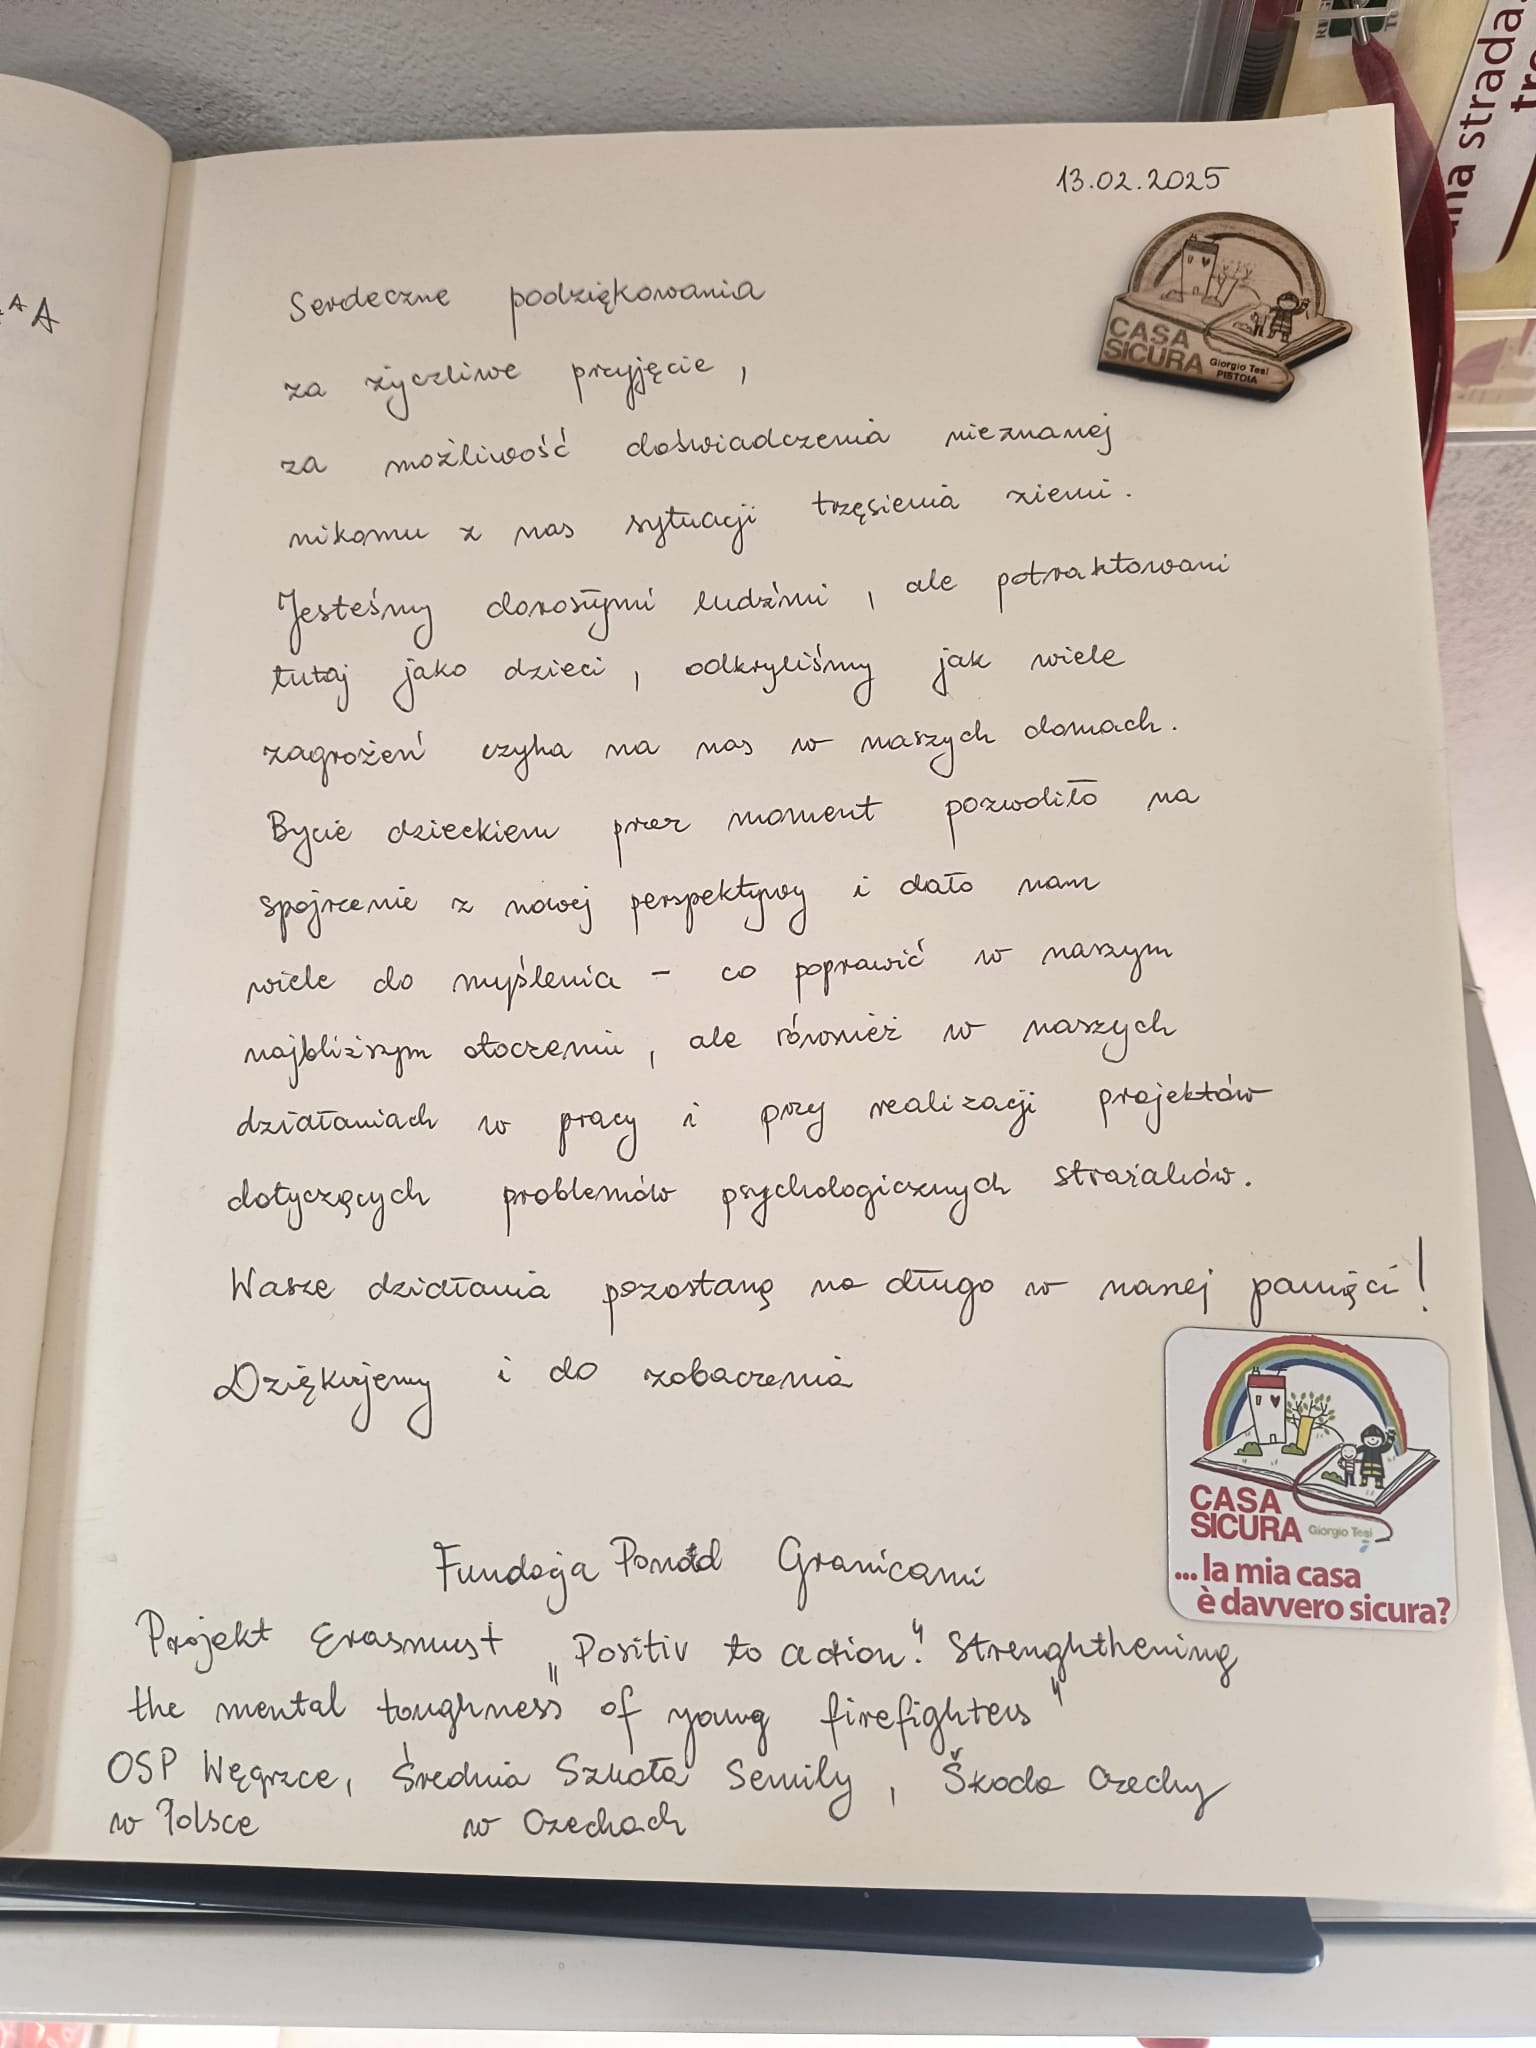 13.02.2025
Serdeczne podziękowania
za życzliwe przyjęcie,
za możliwość doświadczenia nieznanej
nikomu z nas sytuacji trzęsienia ziemi.
Jesteśmy dorosłymi ludźmi, ale potraktowani
tutaj jako dzieci, odkryliśmy jak wiele
zagrożeń czyha na nas w naszych domach.
Bycie dzieckiem przez moment pozwoliło na
spojrzenie z nowej perspektywy i dało nam
wiele do myślenia - co poprawić w naszym
najbliższym otoczeniu, ale również w naszych
działaniach w pracy i przy realizacji projektów
dotyczących problemów psychologicznych strażaków.
Wasze działania pozostaną na długo w naszej pamięci!
Dziękujemy i do zobaczenia
Fundacja Ponad Granicami
Projekt Erasmus+ „Positiv to action." Strenghthening
the mental „toughness of young firefighters"
OSP Węgrzce, Średnia Szkoła Semily, Škoda Czechy
w Polsce w Czechach
CASA
SICURA Giorgio Tesi
PISTOIA
CASA
SICURA Giorgio Tesi
... la mia casa
è davvero sicura?
na strada